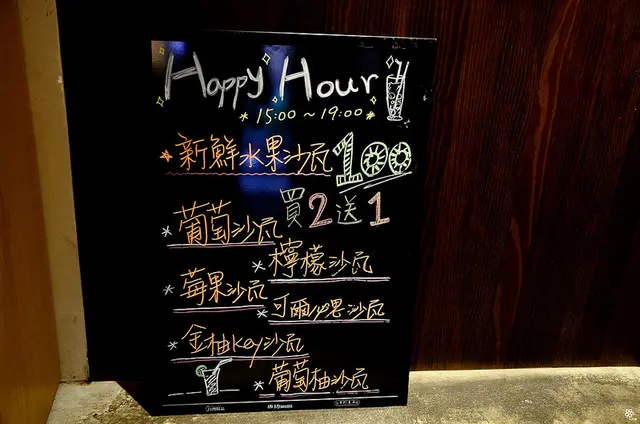 Happy Hour
*15:00～19:00*
新鮮水果沙瓦100
買2送1
*葡萄沙瓦
*檸檬沙瓦
*莓果沙瓦
*可爾必思沙瓦
*金柚key沙瓦
*葡萄柚沙瓦